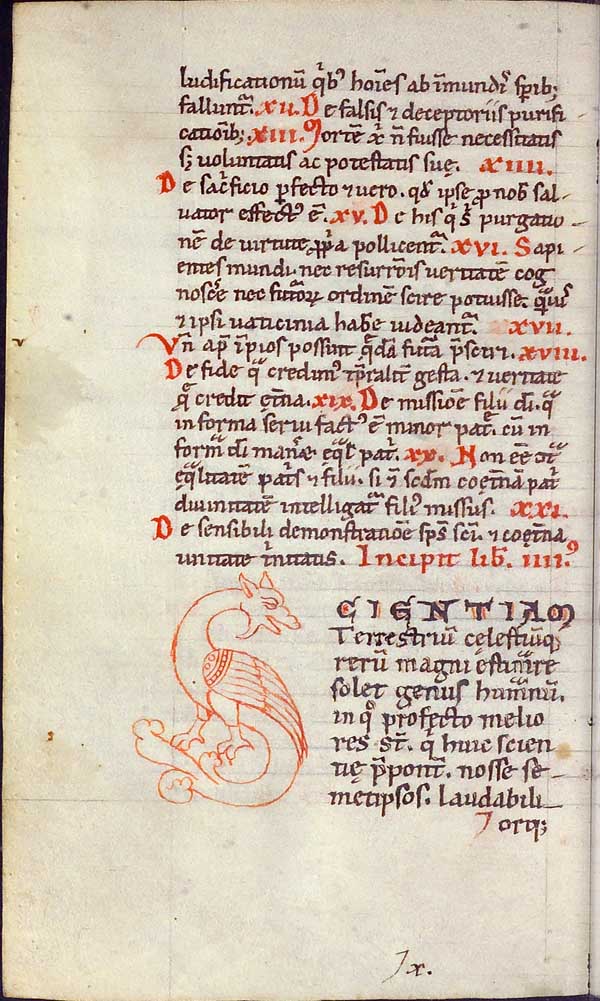 ludificationū qͥbꝰ hoīes ab īmundiˢ sp̄ib;
fallunt᷑. XII. De falsis ⁊ deceptoriis purifi
catiōib; XIII. Mortē xͥ n̄ fuisse necessitatis
s; voluntatis ac potestatis suę. XIIII.
De sacͥficio ꝑfecto ⁊ vero. qd̄ ipse ꝓ nob̄ sal
vator effectꝰ ē. XV. De his qͥ s̄ purgatio
nē de virtute ꝓpͥa pollicent᷑. XVI. Sapi
entes mundi. nec resurrōis veritatē cog
nosc̄e nec futurorꝝ ordinē scire potuisse. quāuiˢ
⁊ ipsi vaticinia hab̄e videant᷑. XVII.
Vn̄ ap̄ īpios possunt qͣdā fut̄a p̄sciri. XVIII.
De fide qͣ credimꝰ tp̄ralit̄ gesta. ⁊ veritate
qͣ credit᷑ et̄na. XIX. De missiōe filii dī. qͣ
in forma servi factꝰ ē minor pat̄. cū in
form̄ dī man̄e eqͣl pat̄. XX. Non eē ꝯtͣ
eqͣlitatē pat̄s ⁊ filii. si ⁊ scdm̄ coet̄nā pat̄
divinitatē intelligat᷑ filiꝰ missus. XXI.
De sensibili demonstratiōe sp̄s sc̄i. ⁊ coęt̄na
unitate tͥnitatis. Incipit lib̄. IIIIꝰ
CIENTIAM
Terrestriū celestiūq;
rerū magni estimare
solet genus humanū.
in qͦ profecto melio
res st̄. qͥ huic scien
tię p̄pont̄. nosse se
metipsos. laudabili
orq;
IX.